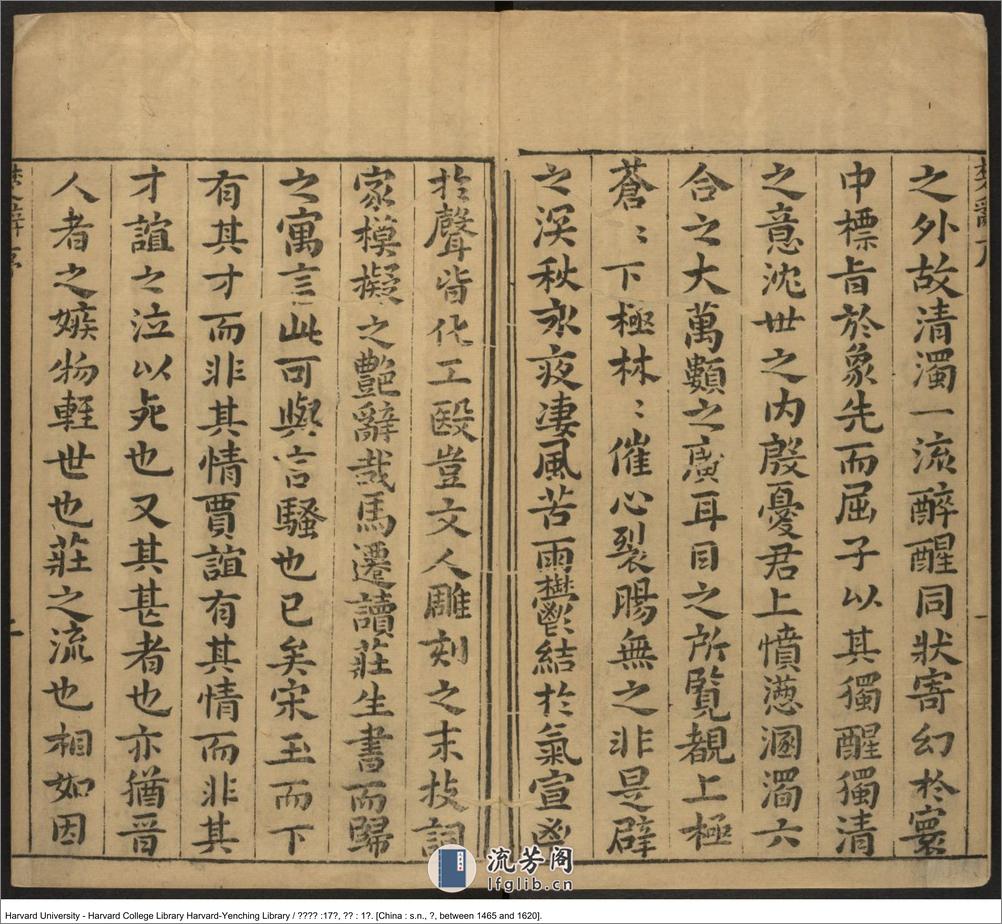 楚辭序
之外故清濁一流醉醒同狀寄幻於寰
中標旨於象先而屈子以其獨醒獨清
之意沈世之内殷憂君上憤懣溷濁六
合之大萬類之廣耳目之所覧覩上極
蒼〻下極林〻催心裂腸無之非是辟
之深秋永夜淒風苦雨鬱結於氣宣
於聲皆化工殹豈文人雕刻之末技詞
家模擬之艷辭哉馬遷讀莊生書而歸
之寓言此可與言騷也已矣宋玉而下
有其才而非其情賈誼有其情而非其
才誼之泣以死也又其甚者也亦猶晋
人者之嫉物輕世也莊之流也相如因
楚辭序
流芳阁
lfglib.cn
Harvard University - Harvard College Library Harvard-Yenching Library / ???? :17?, ?? : 1?. [China : s.n., ?, between 1465 and 1620].